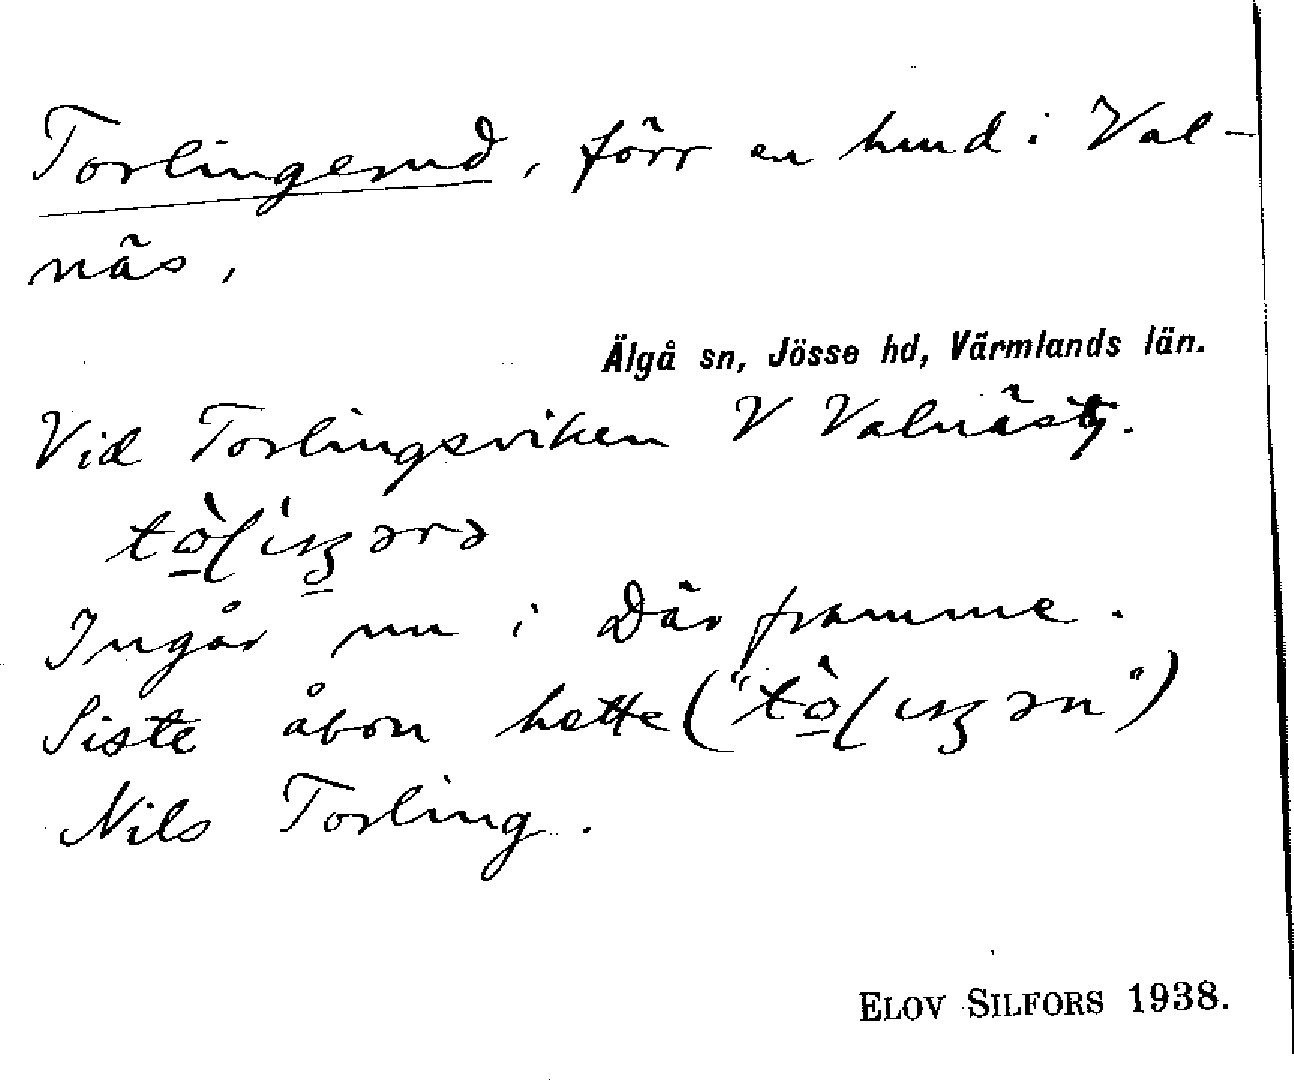 Torlingerud, förr en hmd i Val-
näs,
Älgå sn, Jösse hd, Värmlands län.
Vid Torlingsviken V Valnäs
Ingår nu i Där framme.
Siste åbon hette
Nils Torling.
ELOV SILFORS 1938.